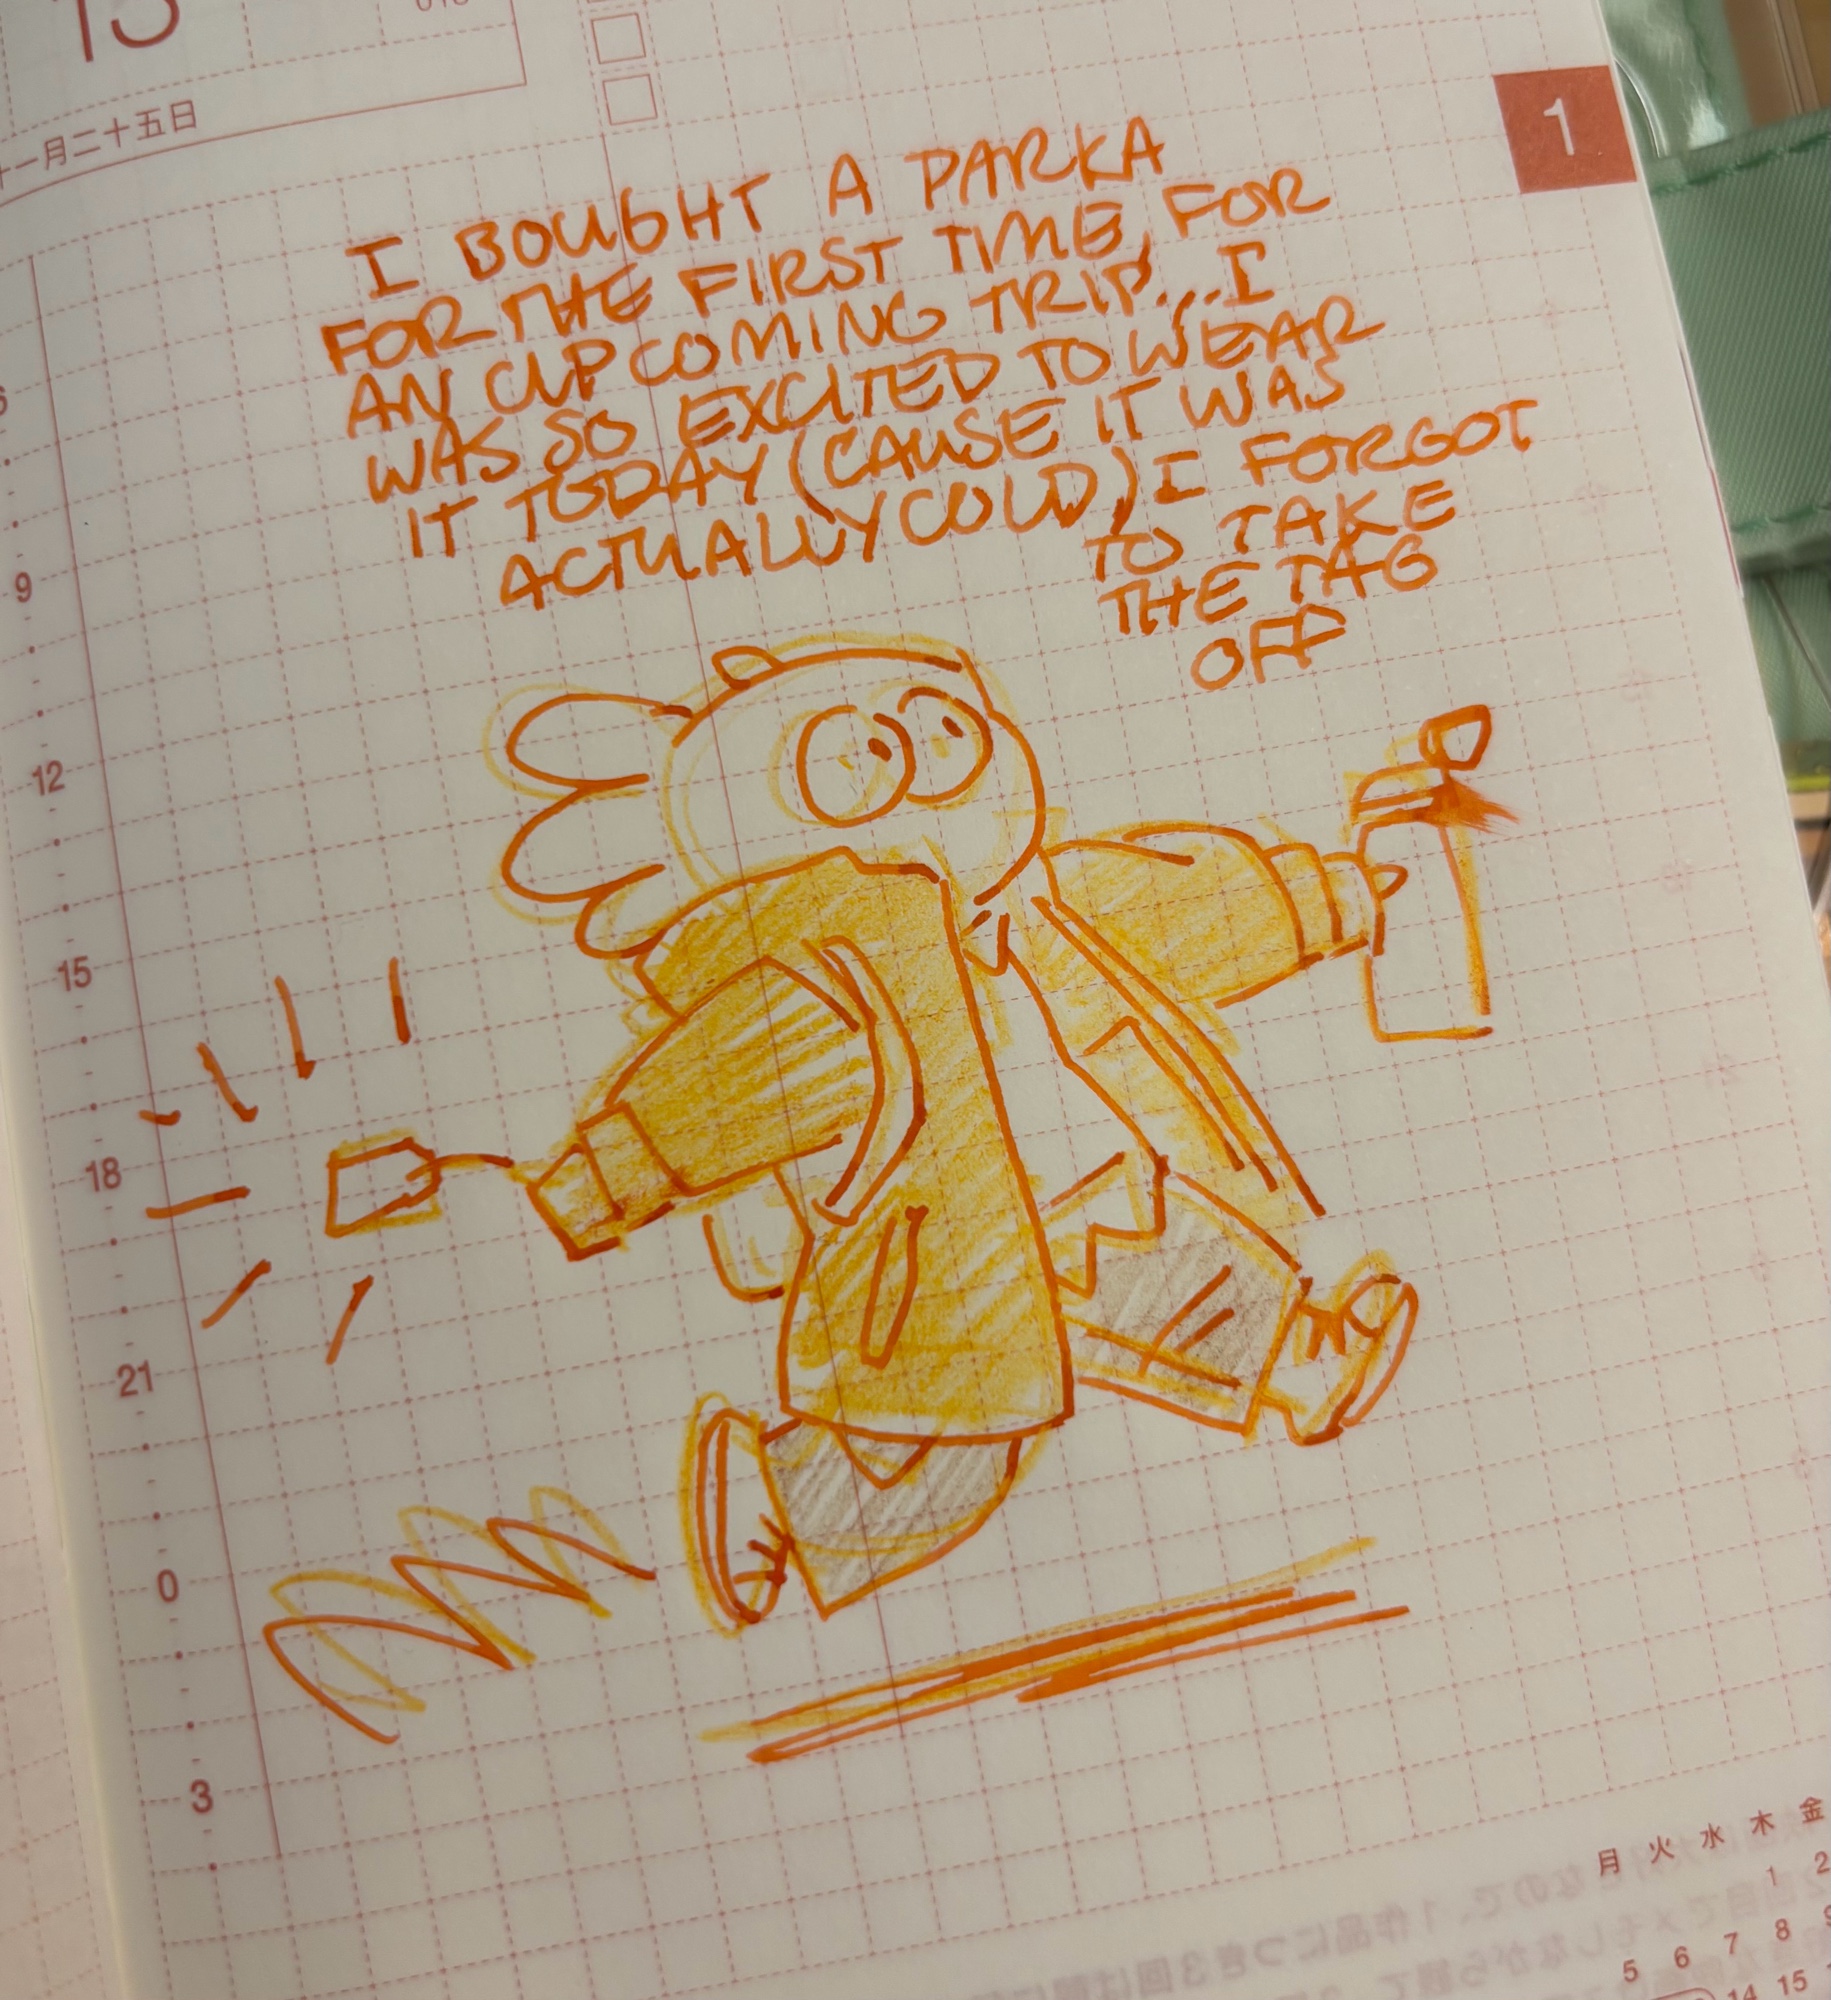 15
十一月二十五日
1
I BOUGHT A PARKA
FOR THE FIRST TIME, FOR
AN UPCOMING TRIP... I
WAS SO EXCITED TO WEAR
IT TODAY (CAUSE IT WAS
ACTUALLY COLD) I FORGOT
TO TAKE
THE TAG
OFF
9
12
15
18
21
0
3
月 火 水 木 金
1 2
5 6 7 8 9
14 15